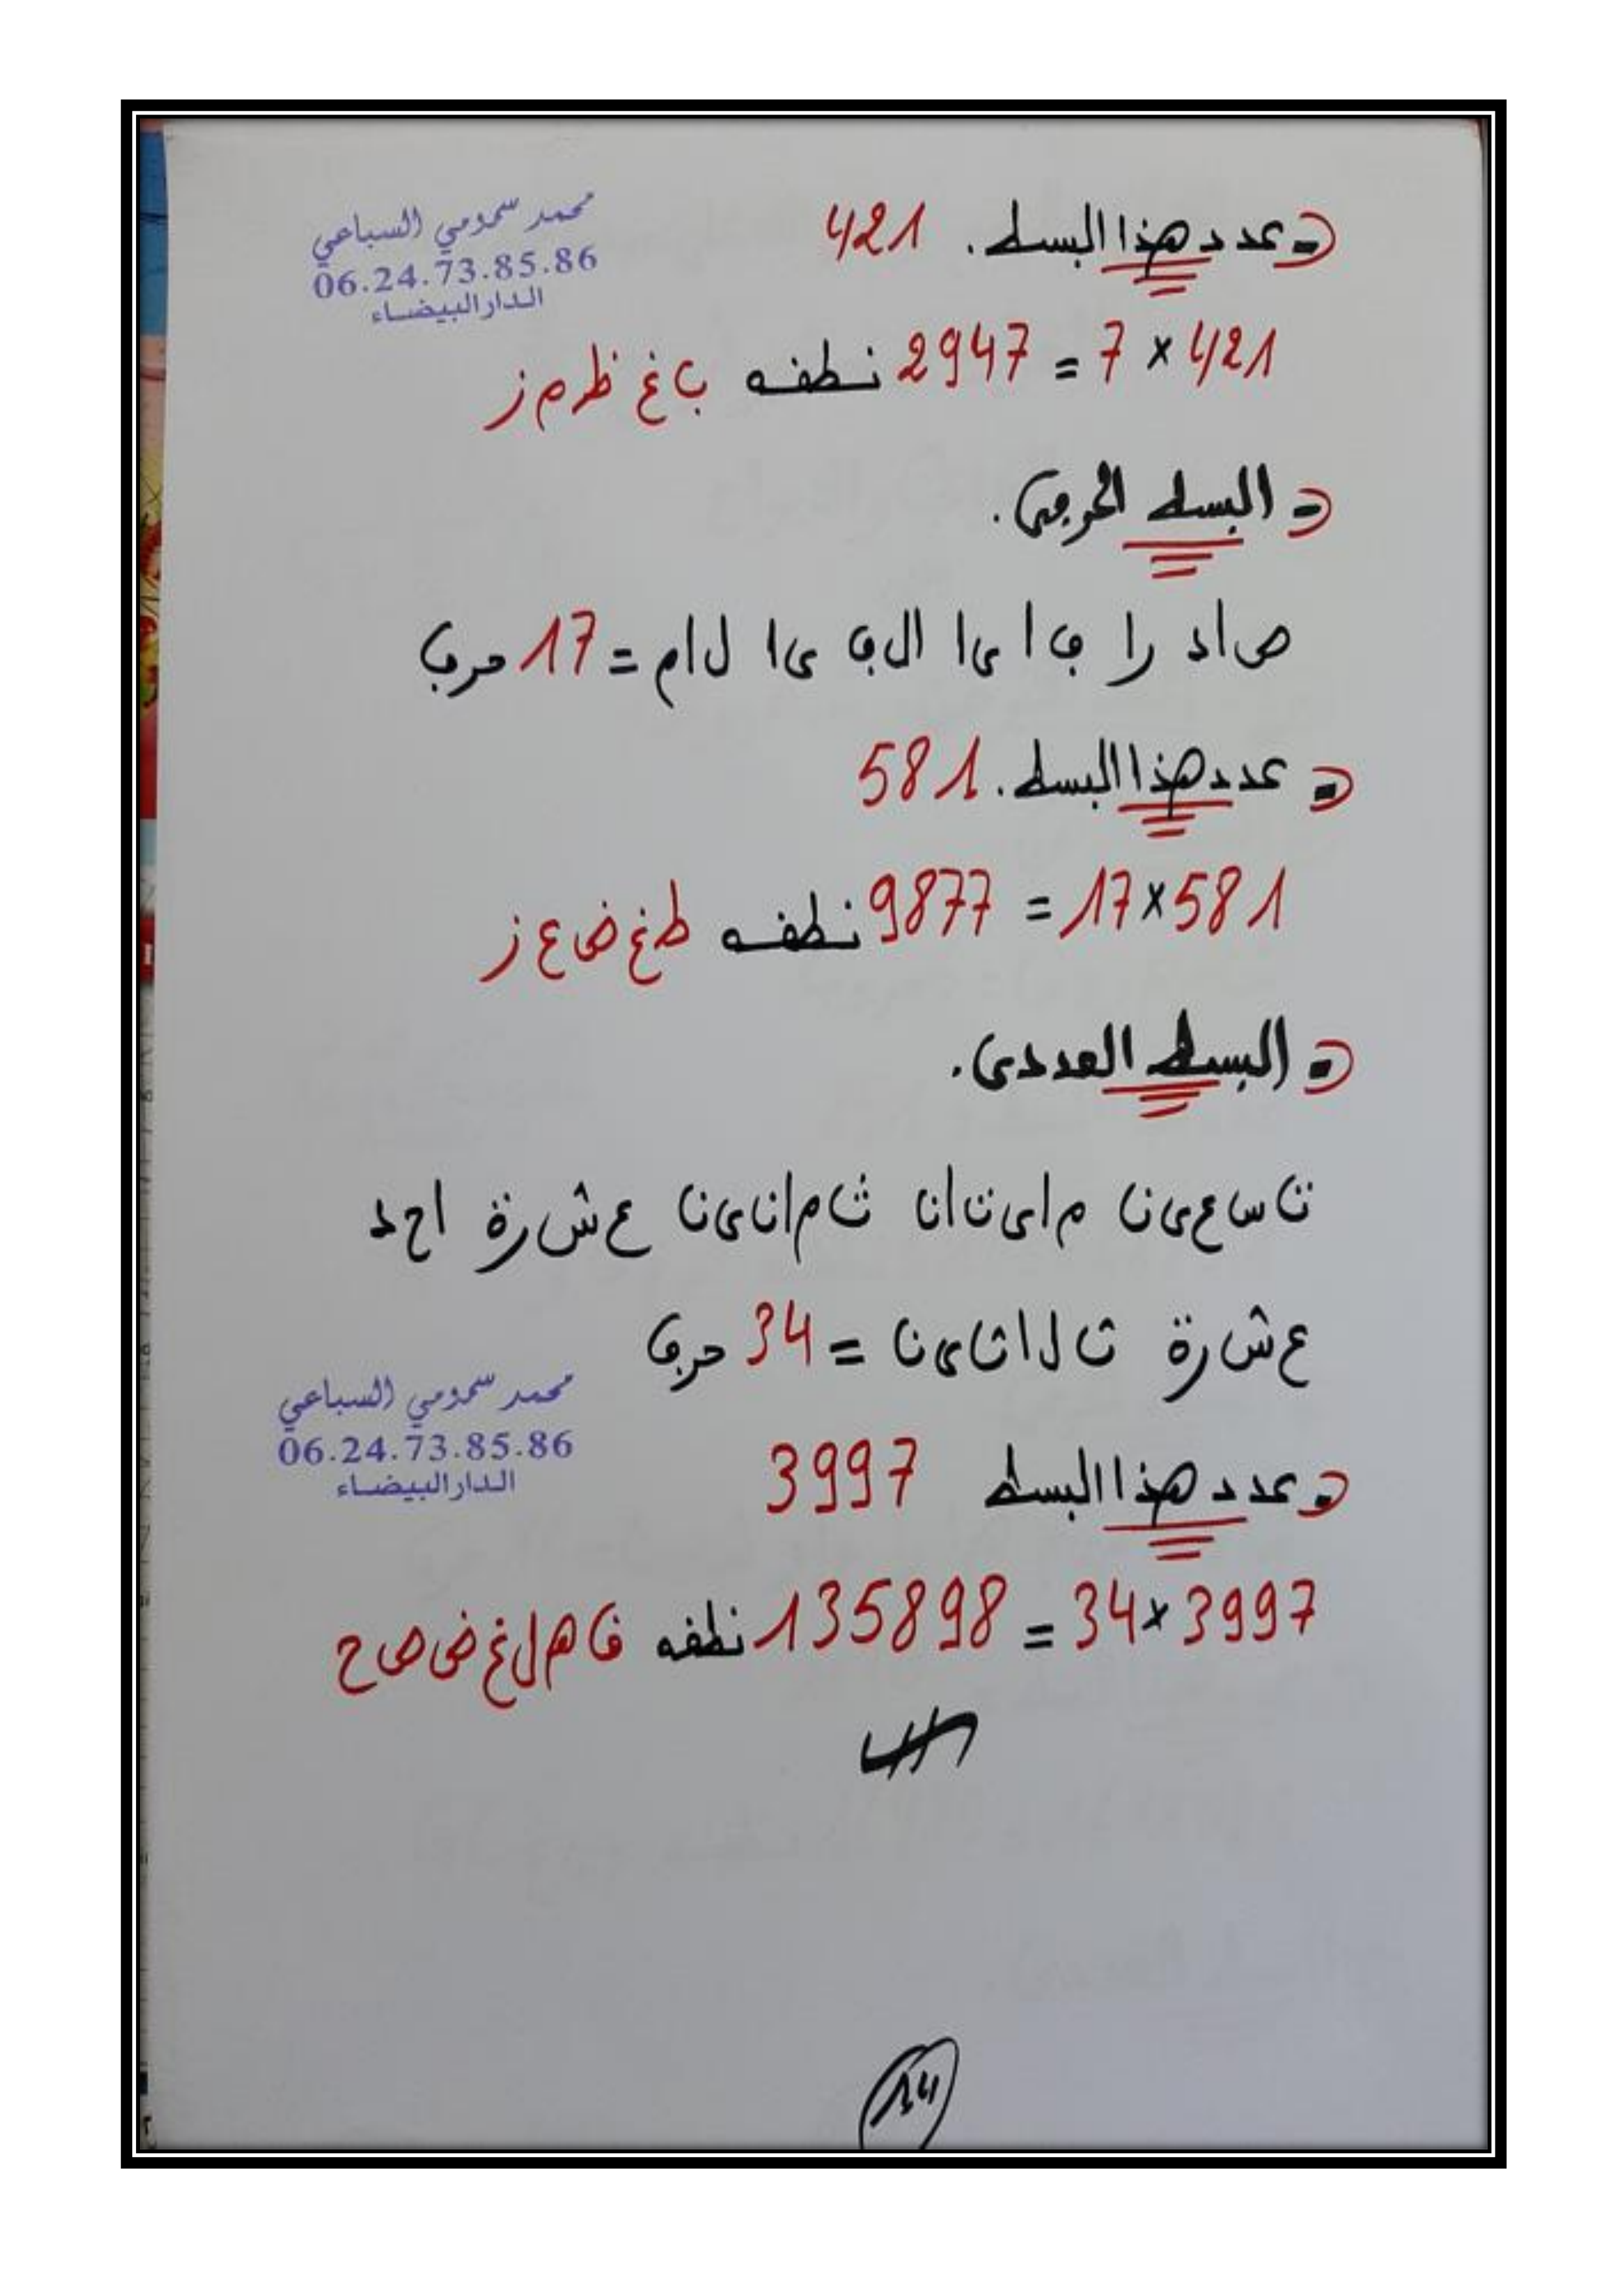 عدد هذا البسط. 421
محمد سمومي السباعي
06.24.73.85.86
الدار البيضاء
421 × 7 = 2947 نطفه ب غ ظ م ز
= البسط الحرفي.
ص ا د ر ا ف ا ى ا ا ل ف ى ا ل ا م = 17 حرف
= عدد هذا البسط. 581
581 × 17 = 9877 نطفه ط غ ض ع ز
= البسط العددي.
ت س ع ى ن م ا ى ت ا ن ث م ا ن ى ن ع ش ر ة ا ح د
ع ش ر ة ث ل ا ث ى ن = 34 حرف
محمد سمومي السباعي
06.24.73.85.86
الدار البيضاء
= عدد هذا البسط 3997
3997 × 34 = 135898 نطفه ق ا ه ل غ ض ص ح
14